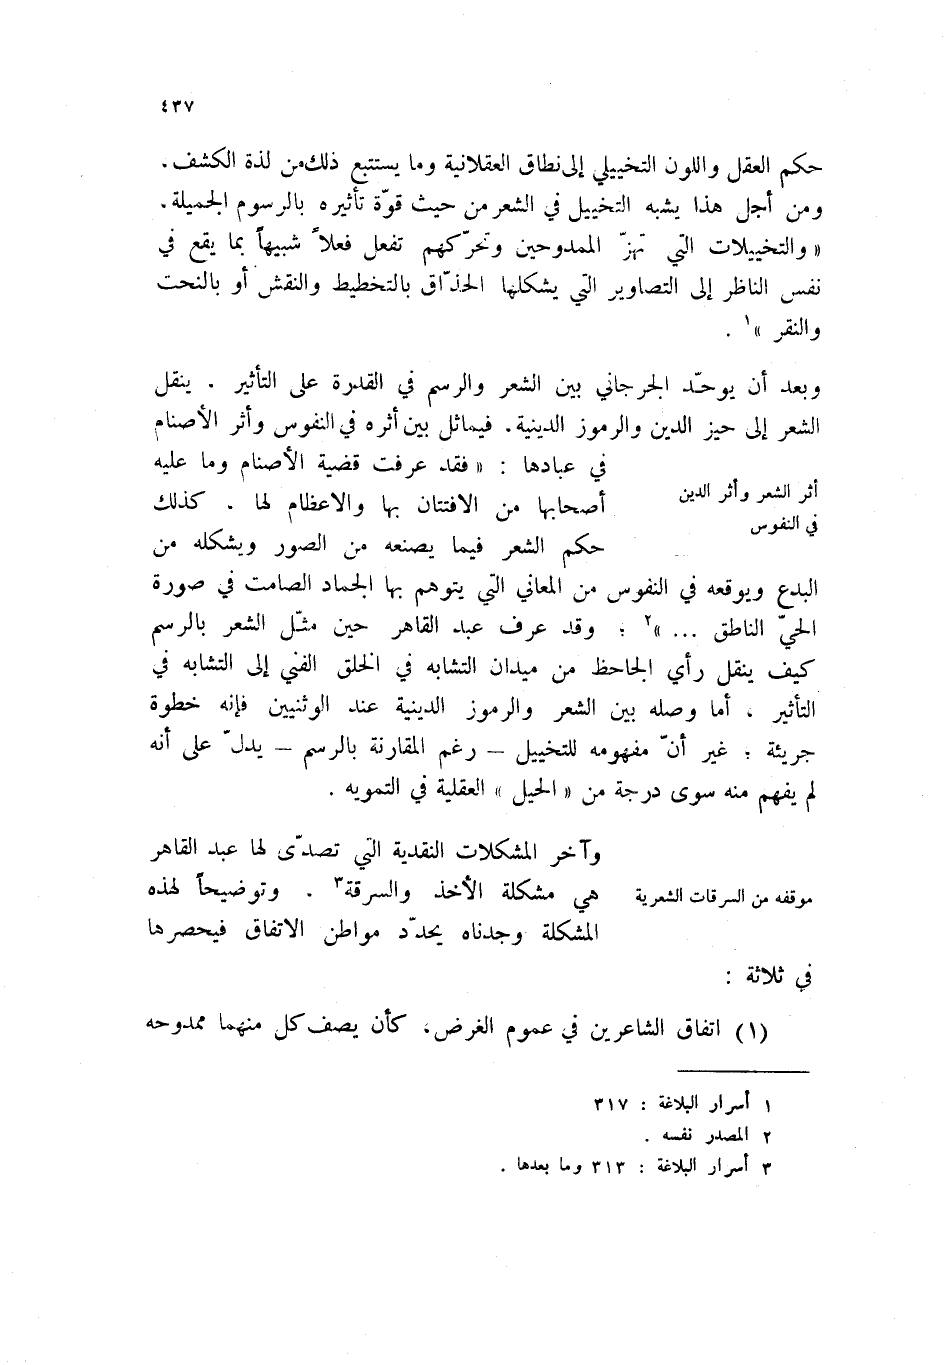 ٤٣٧
حكم العقل واللون التخييلي إلى نطاق العقلانية وما يستتبع ذلك من لذة الكشف .
ومن أجل هذا يشبه التخييل في الشعر من حيث قوّة تأثيره بالرسوم الجميلة .
« والتخييلات التي تهزّ الممدوحين وتحرّكهم تفعل فعلاً شبيهاً بما يقع في
نفس الناظر إلى التصاوير التي يشكلها الحذّاق بالتخطيط والنقش أو بالنحت
والنقر »١ .
وبعد أن يوحّد الجرجاني بين الشعر والرسم في القدرة على التأثير . ينقل
الشعر إلى حيز الدين والرموز الدينية . فيماثل بين أثره في النفوس وأثر الأصنام
في عبادها : « فقد عرفت قضية الأصنام وما عليه
أثر الشعر وأثر الدين
في النفوس
أصحابها من الافتتان بها والاعظام لها . كذلك
حكم الشعر فيما يصنعه من الصور ويشكله من
البدع ويوقعه في النفوس من المعاني التي يتوهم بها الجماد الصامت في صورة
الحيّ الناطق ... »٢ ؛ وقد عرف عبد القاهر حين مثّل الشعر بالرسم
كيف ينقل رأي الجاحظ من ميدان التشابه في الخلق الفني إلى التشابه في
التأثير ، أما وصله بين الشعر والرموز الدينية عند الوثنيين فإنه خطوة
جريئة ؛ غير أنّ مفهومه للتخييل – رغم المقارنة بالرسم – يدلّ على أنه
لم يفهم منه سوى درجة من « الحيل » العقلية في التمويه .
وآخر المشكلات النقدية التي تصدّى لها عبد القاهر
موقفه من السرقات الشعرية
هي مشكلة الأخذ والسرقة٣ . وتوضيحاً لهذه
المشكلة وجدناه يحدّد مواطن الاتفاق فيحصرها
في ثلاثة :
(١) اتفاق الشاعرين في عموم الغرض ، كأن يصف كل منهما ممدوحه
١ أسرار البلاغة : ٣١٧
٢ المصدر نفسه .
٣ أسرار البلاغة : ٣١٣ وما بعدها .